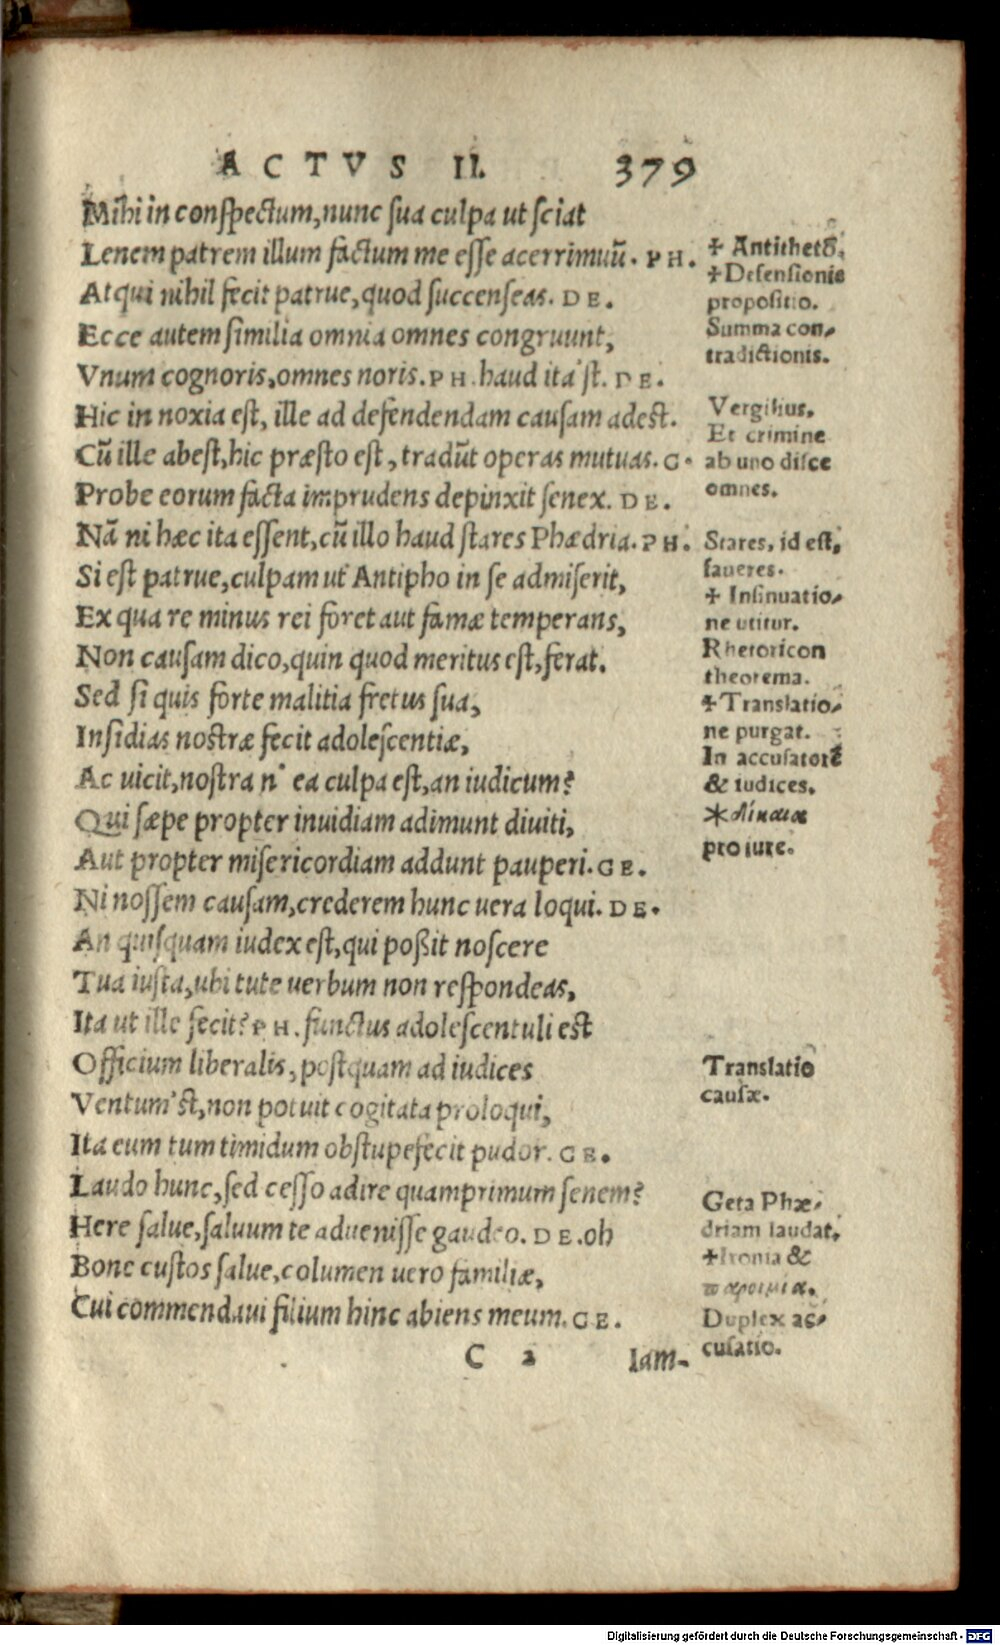 ACTVS II. 379
Mihi in conspectum, nunc sua culpa ut sciat
Lenem patrem illum factum me esse acerrimuū. PH.
Atqui nihil fecit patrue, quod succenseas. DE.
Ecce autem similia omnia omnes congruunt,
Vnum cognoris, omnes noris. PH. haud ita'st. DE.
Hic in noxia est, ille ad defendendam causam adest.
Cū ille abest, hic præsto est, tradūt operas mutuas. G.
Probe eorum facta imprudens depinxit senex. DE.
Nā ni hæc ita essent, cū illo haud stares Phædria. PH.
Si est patrue, culpam ut Antipho in se admiserit,
Ex qua re minus rei foret aut famæ temperans,
Non causam dico, quin quod meritus est, ferat.
Sed si quis forte malitia fretus sua,
Insidias nostræ fecit adolescentiæ,
Ac uicit, nostra n' ea culpa est, an iudicum?
Qui sæpe propter inuidiam adimunt diuiti,
Aut propter misericordiam addunt pauperi. GE.
Ni nossem causam, crederem hunc uera loqui. DE.
An quisquam iudex est, qui poßit noscere
Tua iusta, ubi tute uerbum non respondeas,
Ita ut ille fecit? PH. functus adolescentuli est
Officium liberalis, postquam ad iudices
Ventum'st, non potuit cogitata proloqui,
Ita eum tum timidum obstupefecit pudor. GE.
Laudo hunc, sed cesso adire quamprimum senem?
Here salue, saluum te aduenisse gaudeo. DE. oh
Bone custos salue, columen uero familiæ,
Cui commendaui filium hinc abiens meum. GE.
C 2 Iam-
+ Antithetō.
+ Defensionis
propositio.
Summa con-
tradictionis.
Vergilius.
Et crimine
ab uno disce
omnes.
Stares, id est,
faueres.
+ Insinuatio-
ne utitur.
Rhetoricon
theorema.
+ Translatio-
ne purgat.
In accusatorē
& iudices.
* δίκαια
pro iure.
Translatio
causæ.
Geta Phæ-
driam laudat.
+ Ironia &
παροιμία.
Duplex ac-
cusatio.
Digitalisierung gefördert durch die Deutsche Forschungsgemeinschaft - DFG